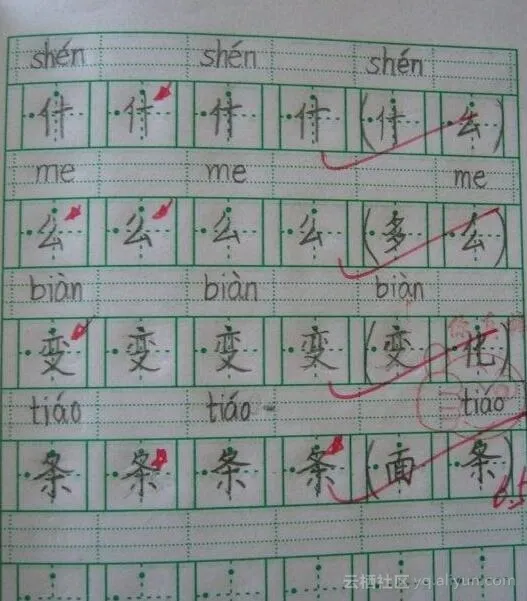 shén shén shén
什 什 什 什 (什 么)
me me me
么 么 么 么 (多 么)
biàn biàn biàn
变 变 变 变 (变 化)
tiáo tiáo tiáo
条 条 条 条 (面 条)
云栖社区 yq.aliyun.com